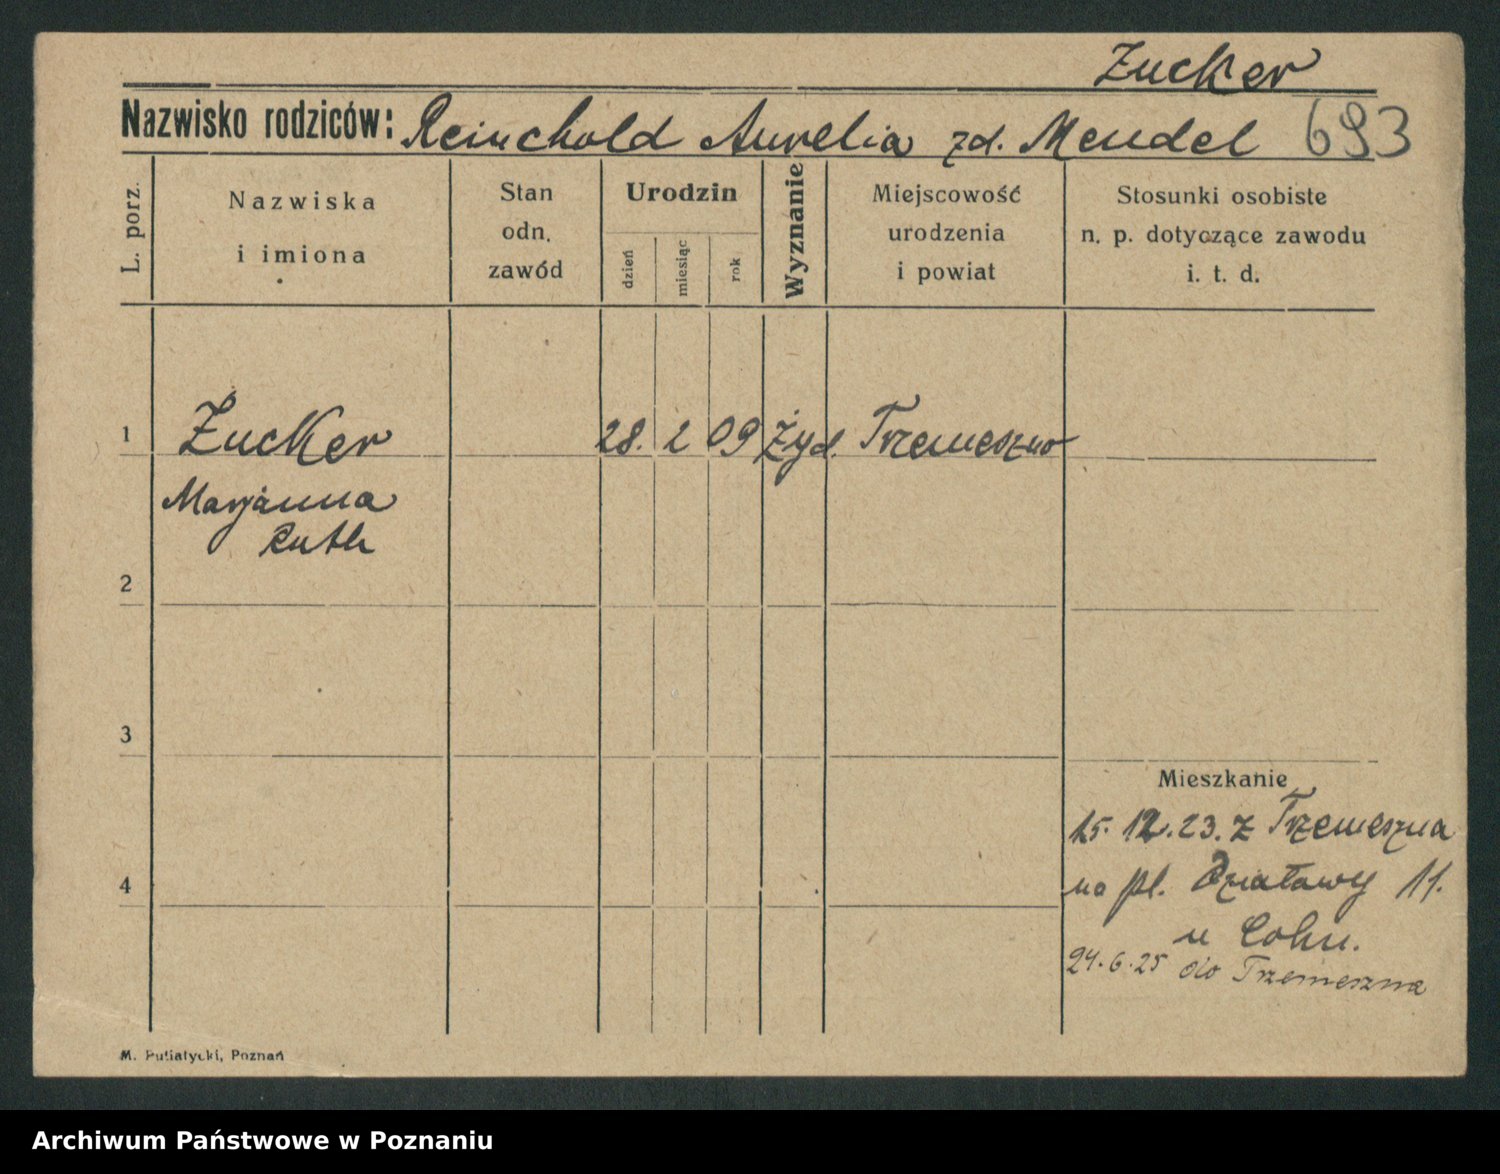 Zucker
Nazwisko rodziców: Reinchold Aurelia zd. Mendel 693
L. porz.
Nazwiska
i imiona
Stan
odn.
zawód
Urodzin
dzień
miesiąc
rok
Wyznanie
Miejscowość
urodzenia
i powiat
Stosunki osobiste
n. p. dotyczące zawodu
i. t. d.
1 Zucker 28. 2 09 Żyd. Trzemeszno
Marjanna
Ruth
2
3
Mieszkanie
15. 12. 23. z Trzemeszna
4
na pl. Działowy 11.
u Cohn.
24. 6. 25 do Trzemeszna
M. Putiatycki, Poznań
Archiwum Państwowe w Poznaniu